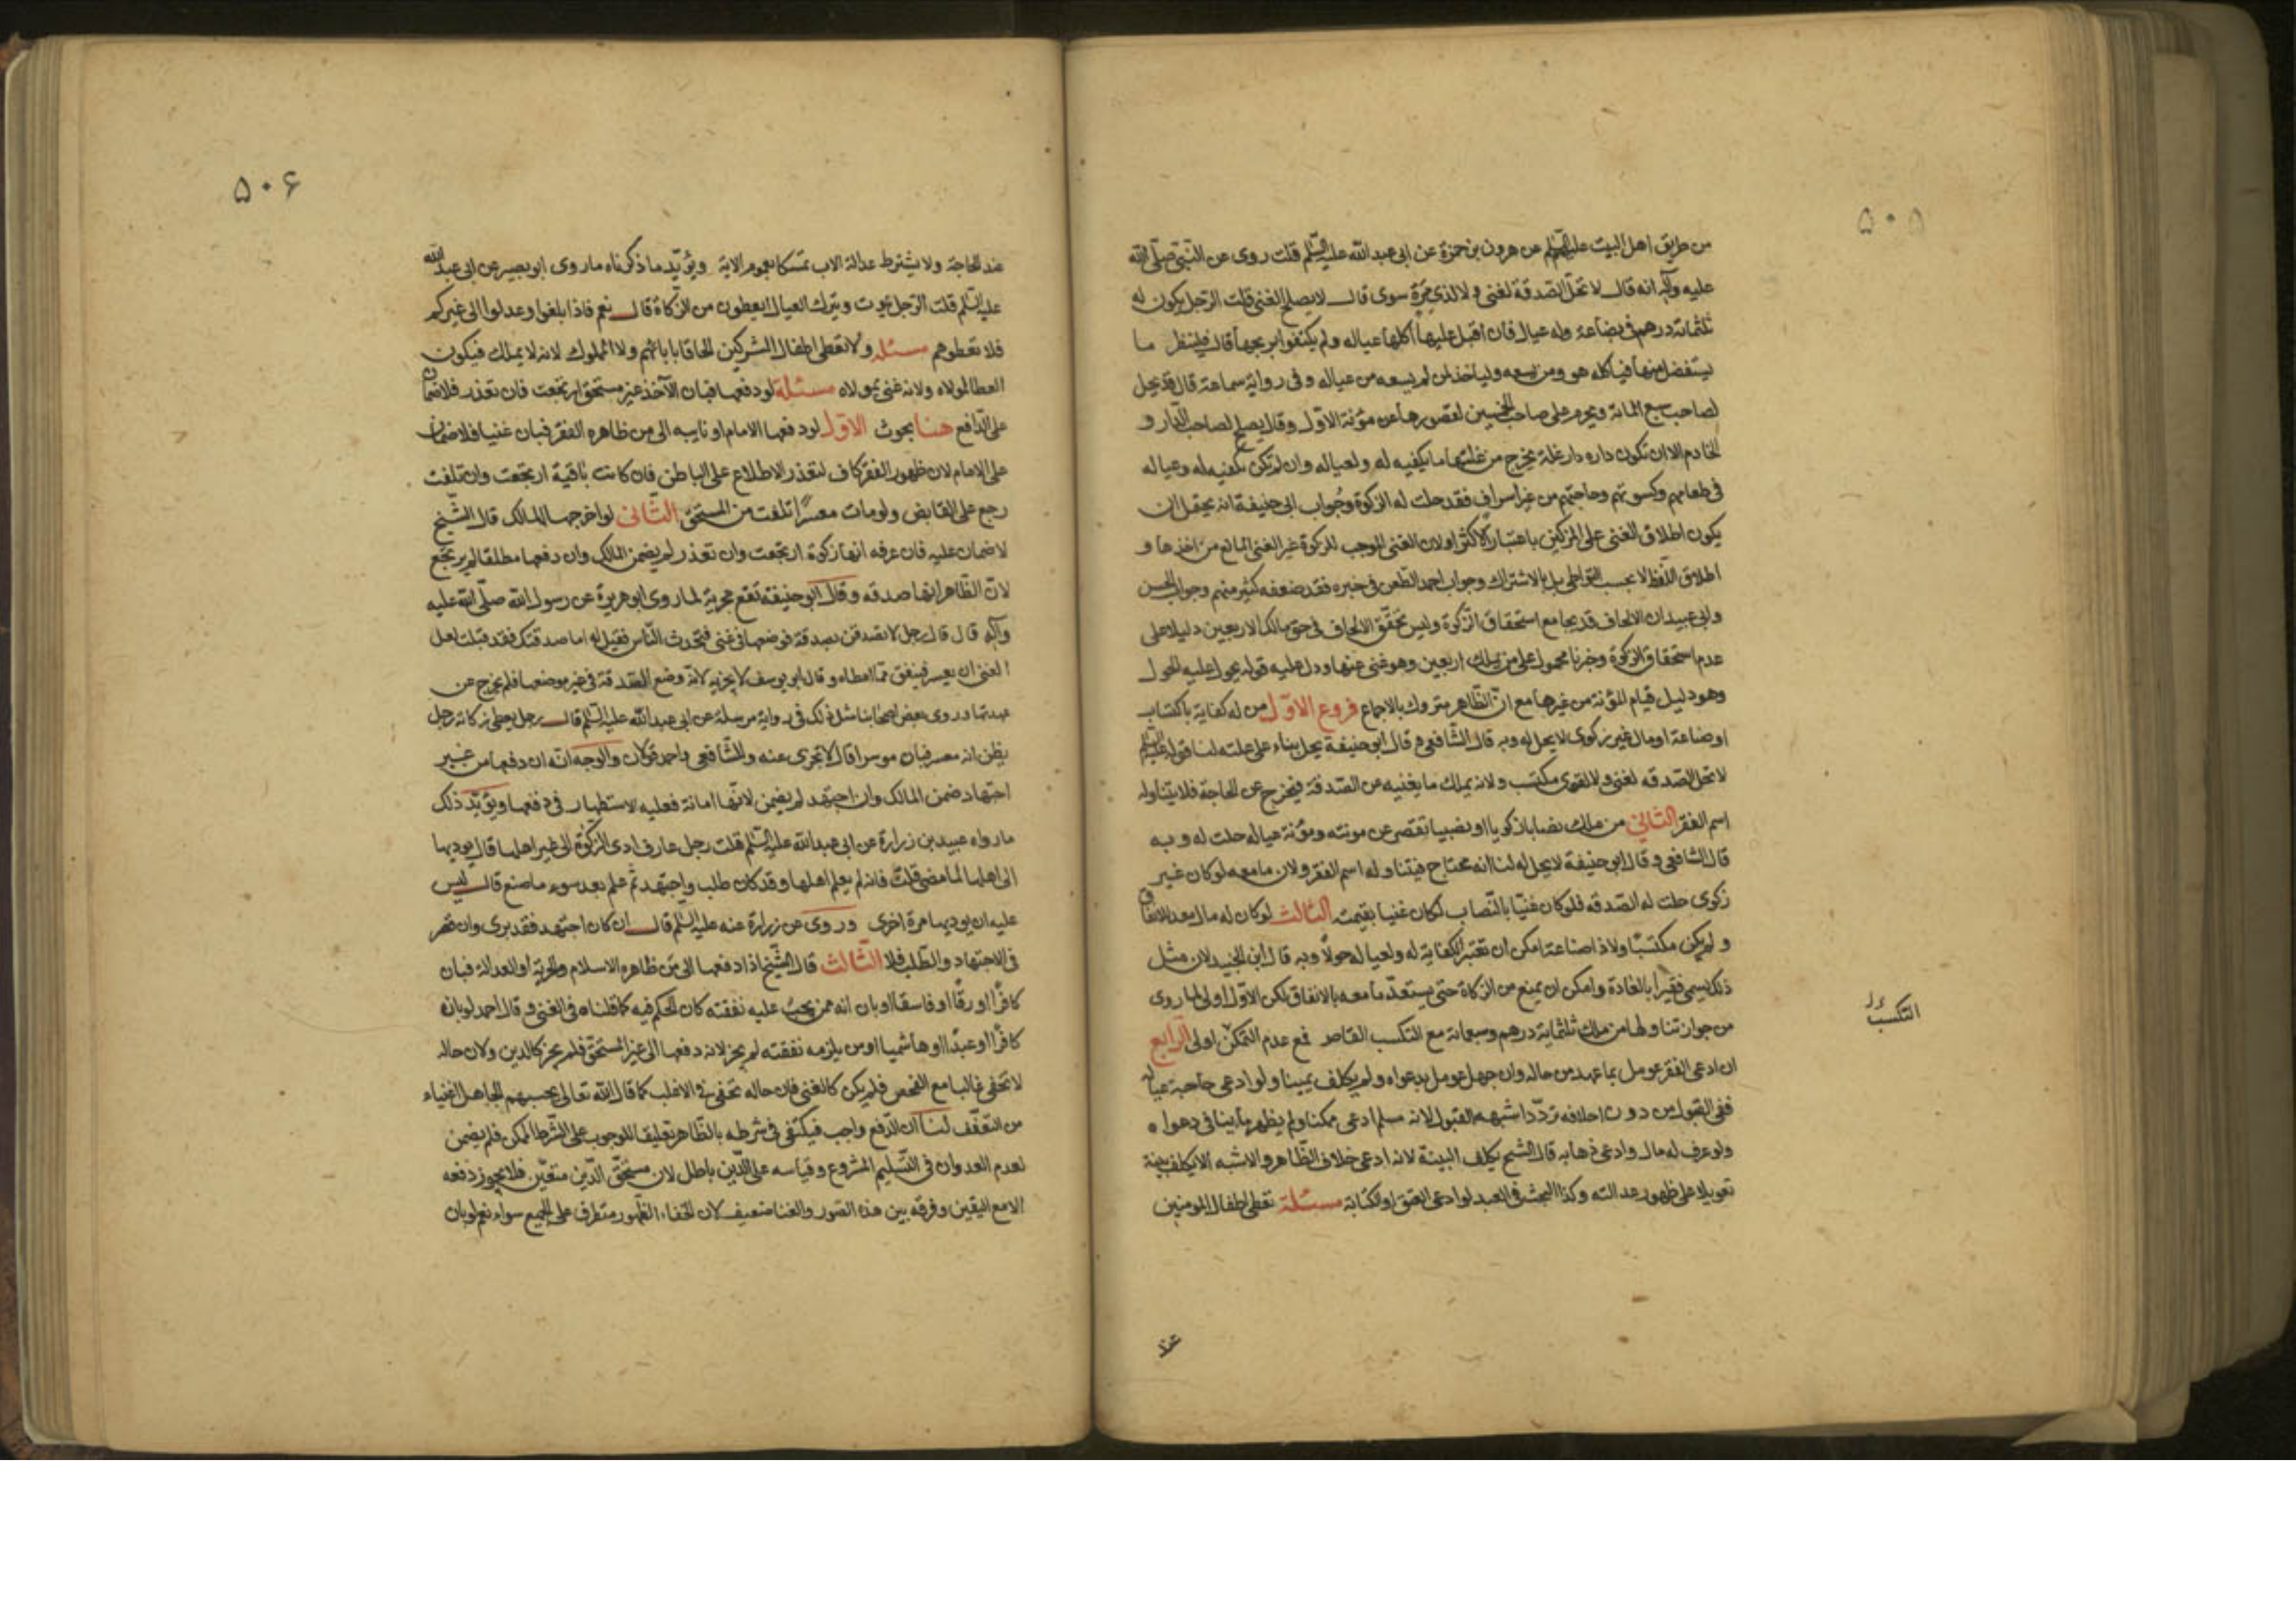 ۵۰۵
من طريق اهل البيت عليهم السلم عن هرون بن حمزة عن ابى عبد الله عليه السلم قلت روى عن النبى صلى الله
عليه وآله انه قال لا تحل الصدقة لغنى ولا لذى مرة سوى قال لا يصلح لغنى قلت الرجل يكون له
ثلثمائة درهم فى بضاعة وله عيال فان اقبل عليها اكلها عياله ولم يكتفوا بربحها قال فلينظر ما
يستفضل منها فياكله هو ومن يسعه ولياخذ لمن لم يسعه من عياله وفى رواية سماعة قال قد يحل
لصاحب سبع المائة ويحرم على صاحب الخمسين لقصورها عن مؤنة الاول وقال يصلح لصاحب الدار و
الخادم الا ان تكون داره دار غلة يخرج من غلتها ما يكفيه له ولعياله وان لم تكن تكفيه له وعياله
فى طعامهم وكسوتهم وحاجتهم من غير اسراف فقد حلت له الزكوة وجواب ابى حنيفة انه يحتمل ان
يكون اطلاق الغنى على المزكين باعتبار الاكثر اولان الغنى الموجب للزكوة غير الغنى المانع من اخذها و
اطلاق اللفظ لا بحسب التواطى بل بالاشتراك وجواب احمد الطعن فى خبره فقد ضعفه كثير منهم وجواب الحسن
وابى عبيد ان الالحاف قد يجامع استحقاق الزكوة وليس تحقق الالحاف فى حق مالك الاربعين دليلا على
عدم استحقاق الزكوة وخبرنا محمول على من يملك اربعين وهو غنى عنها ودل عليه قوله يحول عليه الحول
وهو دليل قيام المؤنة من غيرها مع ان الظاهر متروك بالاجماع فروع الاول من له كفاية باكتساب
او صناعة او مال غير زكوى لا يحل له وبه قال الشافعى وقال ابو حنيفة يحل بناء على علته لنا قوله عليه السلم
لا تحل الصدقه لغنى ولا لقوى مكتسب ولانه يملك ما يغنيه عن الصدقة فيخرج عن الحاجة فلا يتناوله
اسم الفقر الثانى من ملك نصابا زكويا او نصبا تقصر عن مونته ومؤنة عياله حلت له وبه
قال الشافعى وقال ابو حنيفة لا يحل له لنا انه محتاج فيتناوله اسم الفقر ولان ما معه لو كان غير
زكوى حلت له الصدقه فلو كان غنيا بالنصاب لكان غنيا بقيمته الثالث لو كان له مال معد للانفاق
ولم يكن مكتسبا ولا ذا صناعة امكن ان تعتبر الكفاية له ولعياله حولا وبه قال ابن الجنيد لان مثل
ذلك يسمى فقيرا بالعادة وامكن ان يمنع من الزكاة حتى يستعد ما معه بالانفاق لكن الاول اولى لما روى
من جواز تناولها من ملك ثلثماية درهم وسبعمائة مع التكسب القاصر فمع عدم التمكن اولى الرابع
ان ادعى الفقر عومل بما عهد من حاله وان جهل عومل بدعواه ولم يكلف يمينا ولو ادعى حاجة عياله
ففى القبول من دون احلافه تردد اشبهه القبول لانه مسلم ادعى ممكنا ولم يظهر ما ينافى دعواه
ولو عرف له مال وادعى ذهابه قال الشيخ يكلف البينة لانه ادعى خلاف الظاهر والاشبه الا يكلف بينة
تعويلا على ظهور عدالته وكذا البحث فى العبد لو ادعى العتق او الكتابة مسئلة تعطى اطفال المومنين
التكسب
۵۰۶
عند الحاجة ولا يشترط عدالة الاب تمسكا بعموم الاية ويؤيد ما ذكرناه ما روى ابو بصير عن ابى عبد الله
عليه السلم قلت الرجل يموت ويترك العيال ايعطون من الزكاة قال نعم فاذا بلغوا وعدلوا الى غيركم
فلا تعطوهم مسئله ولا تعطى اطفال المشركين الحاقا بابائهم ولا المملوك لانه لا يملك فيكون
العطا لمولاه ولانه غنى بمولاه مسئلة لو دفعها فبان الآخذ غير مستحق ارتجعت فان تعذر فلا ضمان
على الدافع هنا بحوث الاول لو دفعها الامام او نايبه الى من ظاهره الفقر فبان غنيا فلا ضمان
على الامام لان ظهور الفقر كاف لتعذر الاطلاع على الباطن فان كانت باقية ارتجعت وان تلفت
رجع على القابض ولو مات معسرا تلفت من المستحق الثانى لو اخرجها المالك قال الشيخ
لا ضمان عليه فان عرفه انها زكوة ارتجعت وان تعذر لم يضمن المالك وان دفعها مطلقا لم يرتجع
لان الظاهر انها صدقه وقال ابو حنيفة تقع مجزية لما روى ابو هريرة عن رسول الله صلى الله عليه
وآله قال قال رجل لاتصدقن بصدقة فوضعها فى غنى فتحدث الناس فقيل له اما صدقتك فقد قبلت لعل
الغنى ان يعتبر فينفق مما اعطاه وقال ابو يوسف لا يجزيه لانه وضع الصدقة فى غير موضعها فلم يخرج عن
عهدتها وروى بعض اصحابنا مثل ذلك فى رواية مرسلة عن ابى عبد الله عليه السلم قال رجل يعطى زكاته رجل
يظن انه معسر فبان موسرا قال لا تجزى عنه وللشافعى واحمد قولان والوجه انه ان دفعها من غير
اجتهاد ضمن المالك وان اجتهد لم يضمن لانها امانة فعليه الاستظهار فى دفعها ويؤيد ذلك
ما رواه عبيد بن زرارة عن ابى عبد الله عليه السلم قلت رجل عارف ادى الزكوة الى غير اهلها قال يوديها
الى اهلها لما مضى قلت فانه لم يعلم اهلها وقد كان طلب واجتهد ثم علم بعد سوء ما صنع قال ليس
عليه ان يوديها مرة اخرى وروى عن زرارة عنه عليه السلم قال ان كان اجتهد فقد برى وان قصر
فى الاجتهاد والطلب فلا الثالث قال الشيخ اذا دفعها الى من ظاهره الاسلام والحرية او العدالة فبان
كافرا او رقا او فاسقا او بان انه ممن يجب عليه نفقته كان الحكم فيه كما قلناه فى الغنى وقال احمد لو بان
كافرا او عبدا او هاشميا او من يلزمه نفقته لم يجز لانه دفعها الى غير المستحق فلم يجز كالدين ولان حاله
لا تخفى غالبا مع الفحص فلم يكن كالغنى فان حاله تخفى فى الاغلب كما قال الله تعالى يحسبهم الجاهل اغنياء
من التعفف لنا ان الدفع واجب فيكتفى فى شرطه بالظاهر تعليقا للوجوب على الشرط الممكن فلم يضمن
لعدم العدوان فى التسليم المشروع وقياسه على الدين باطل لان مستحق الدين متعين فلا يجوز دفعه
الا مع اليقين وفرقه بين هذه الصور والغنا ضعيف لان الخفاء والظهور متطرق على الجميع سواء نعم لو بان